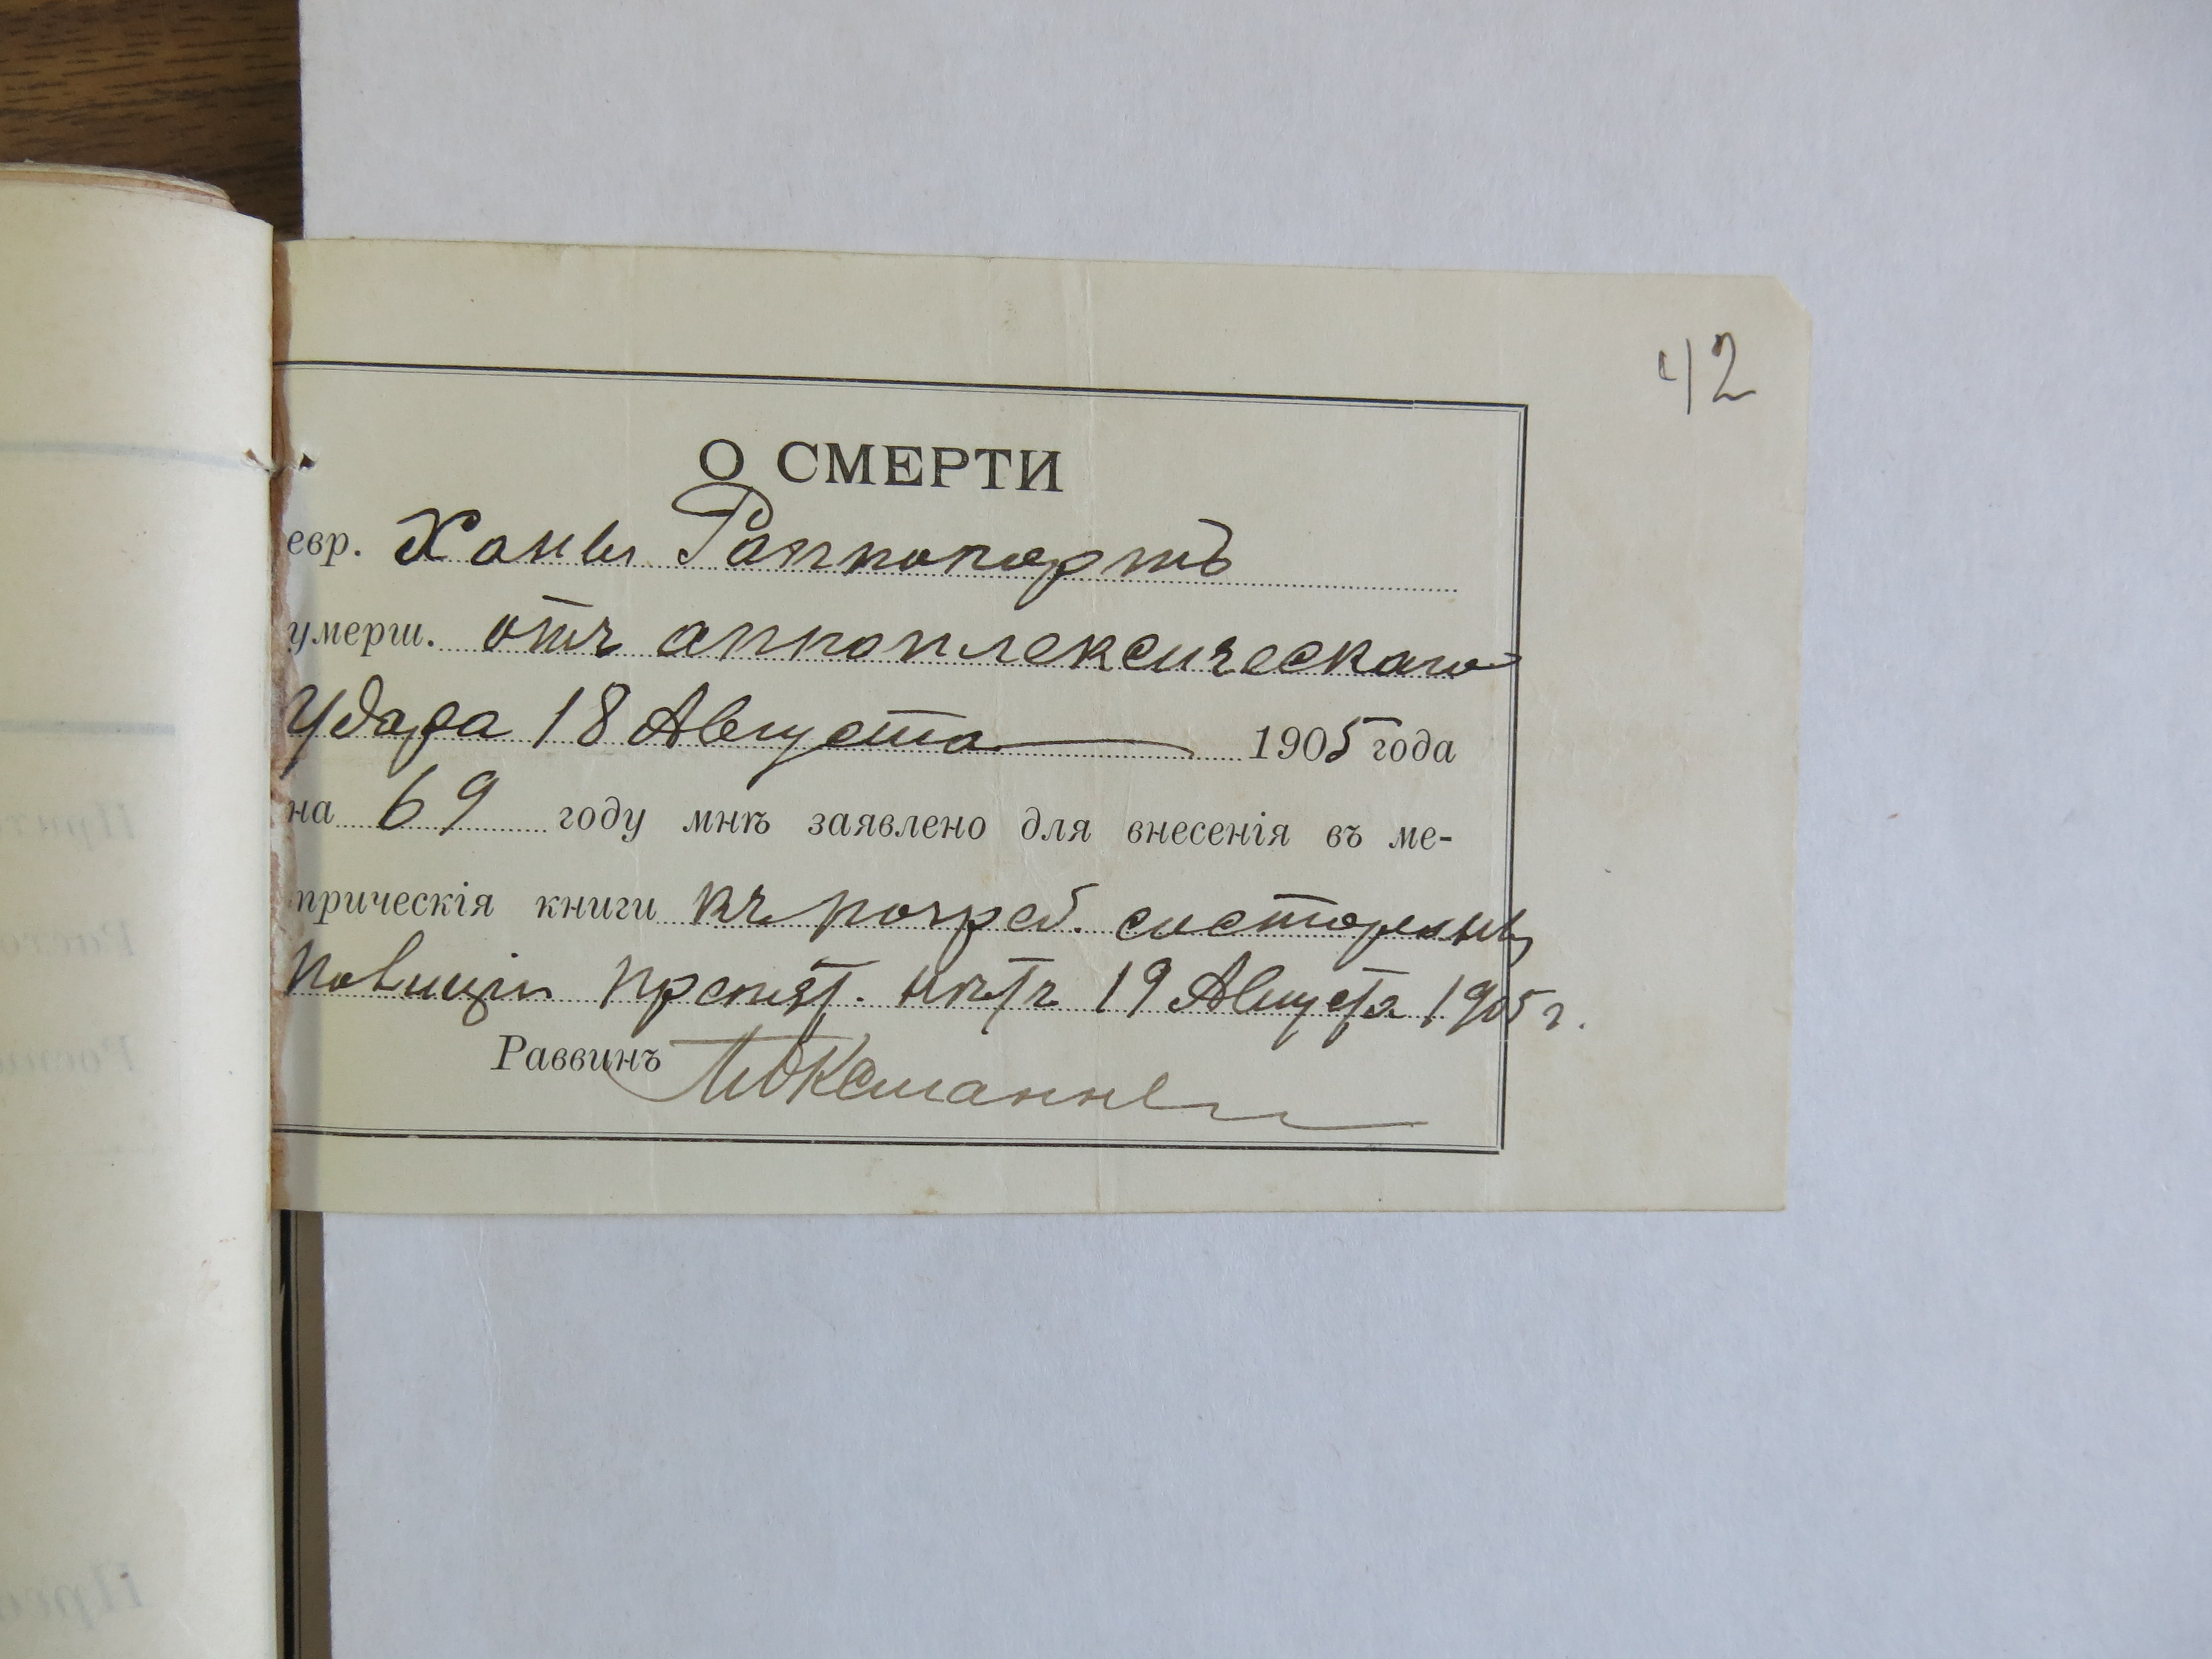 42
О СМЕРТИ
евр. Ханы Раппопортъ
умерш. отъ аппоплексическаго
удара 18 Августа 1905 года
на 69 году мнѣ заявлено для внесенія въ ме-
трическія книги къ погреб. со стороны
полиціи препят. нѣтъ 19 Августа 1905 г.
Раввинъ